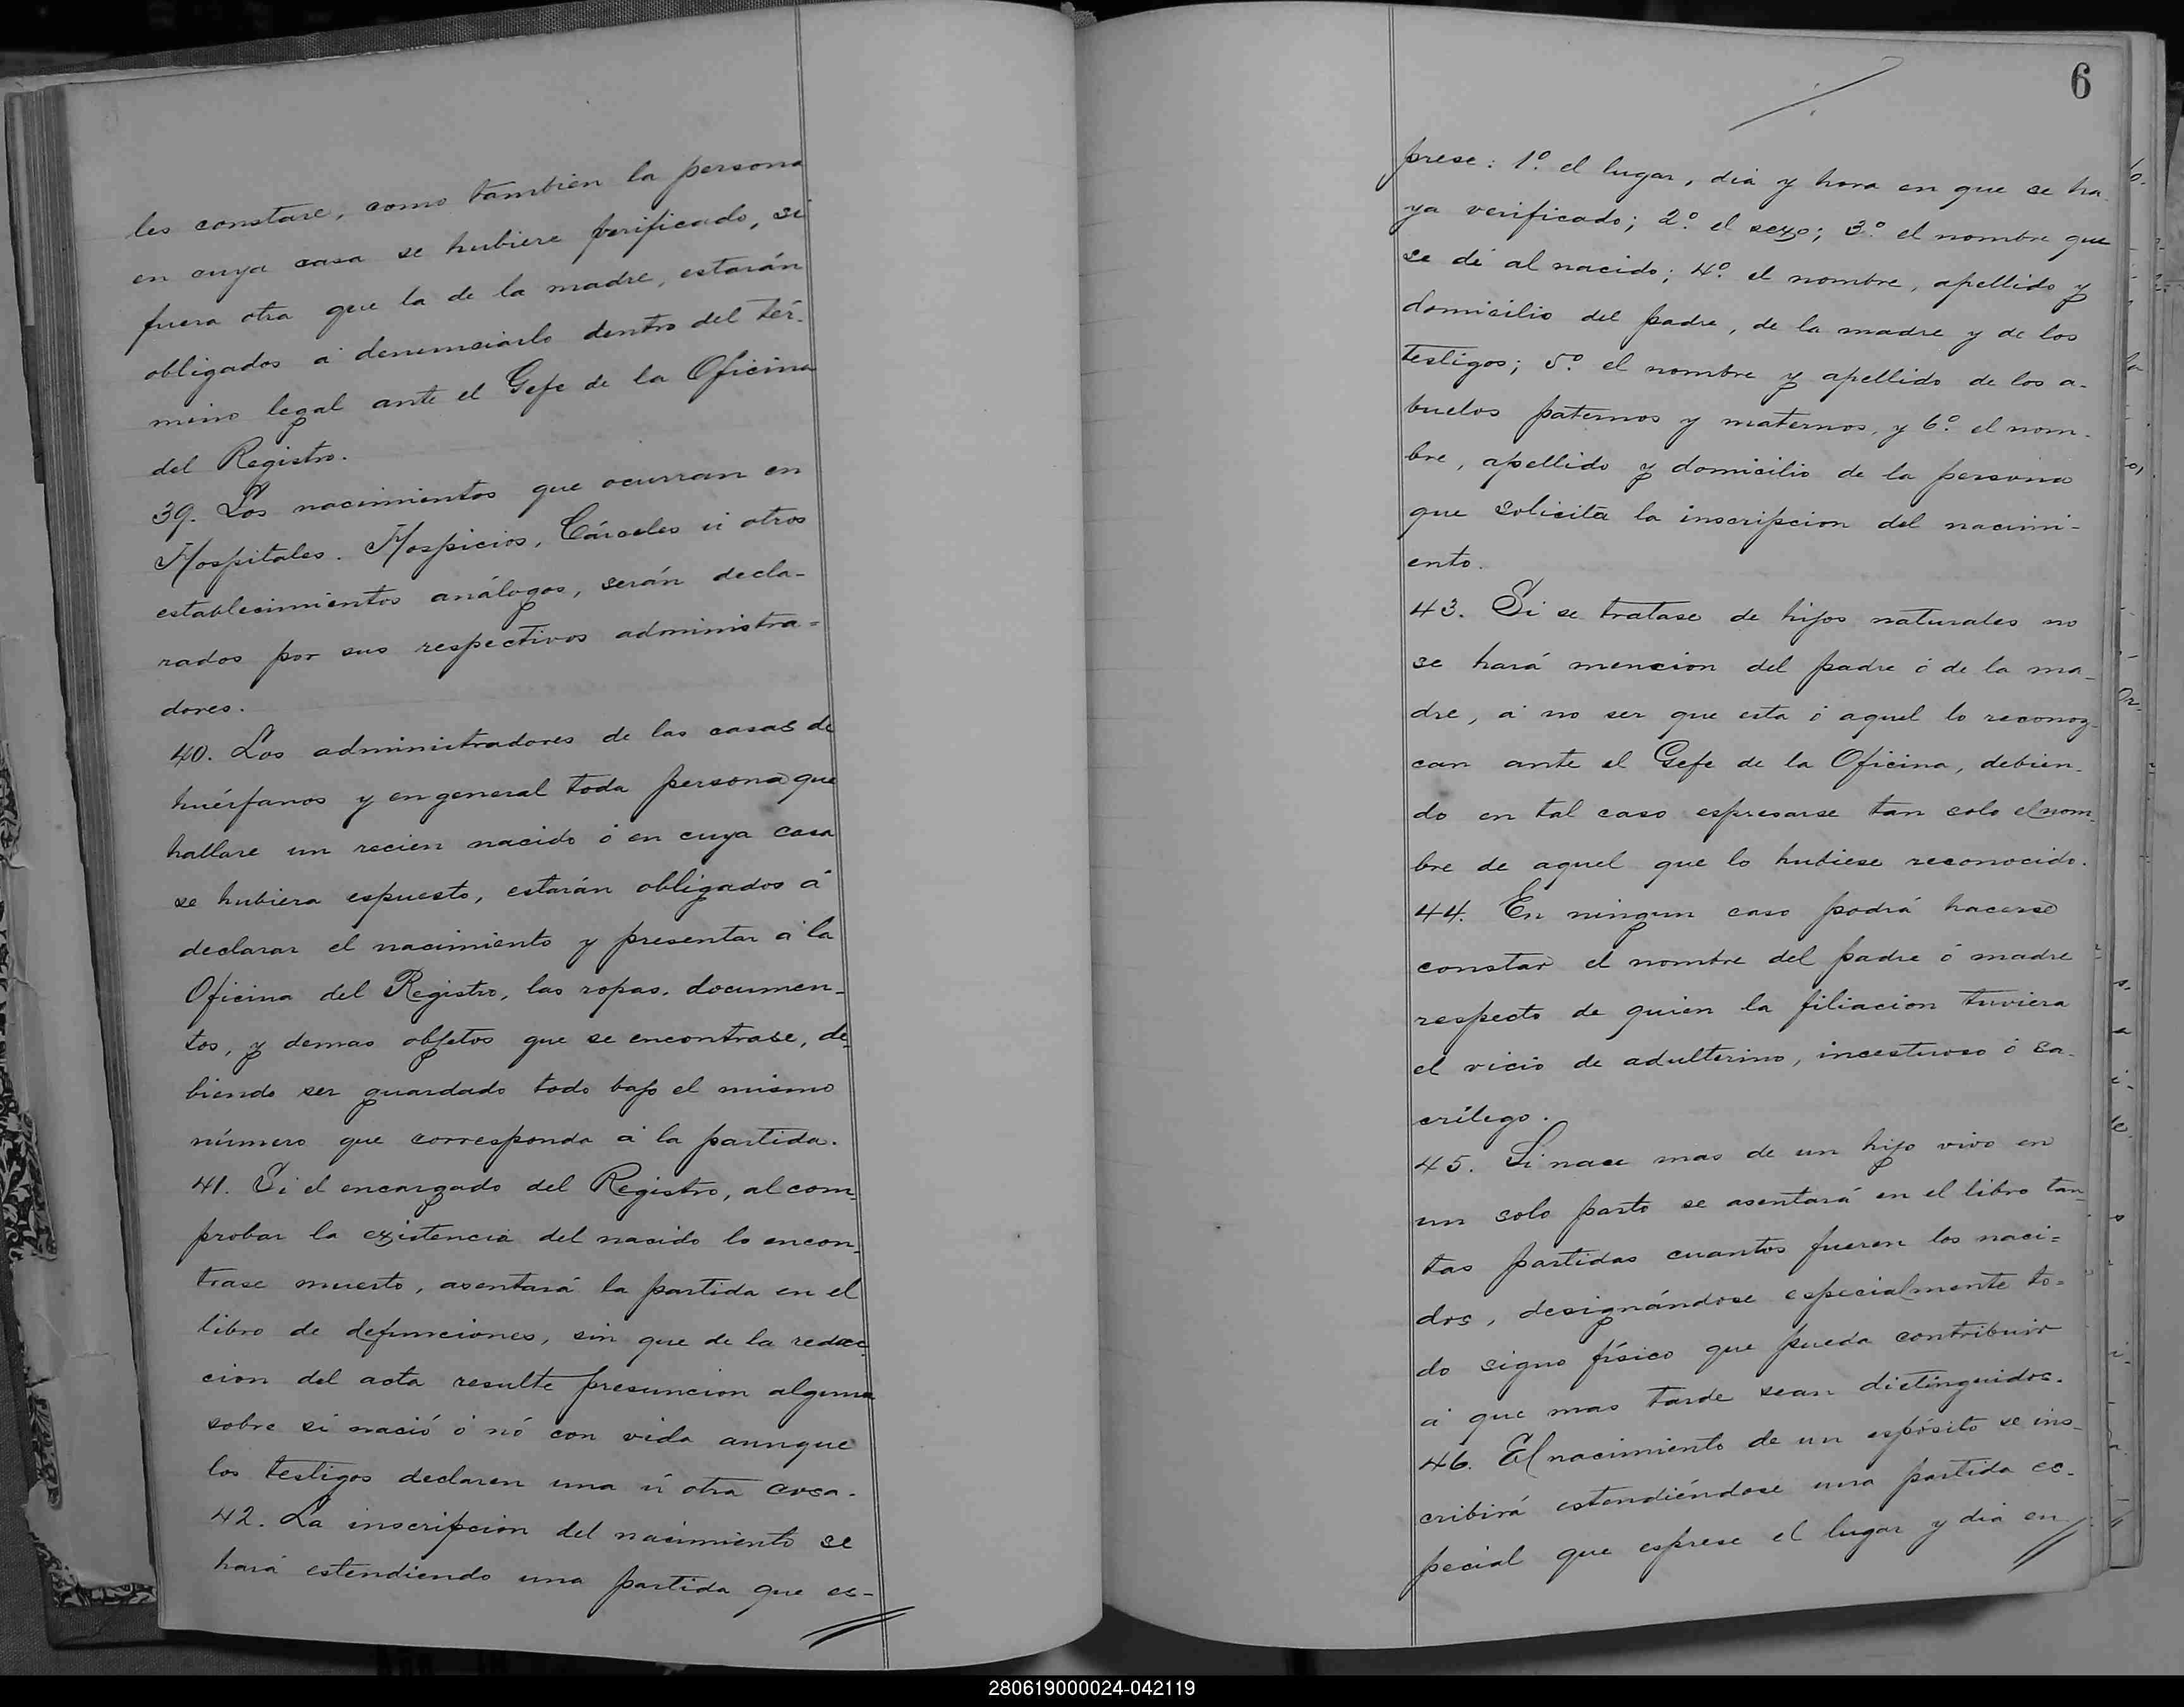 les constare, como tambien la persona
en cuya casa se hubiere verificado, si
fuera otra que la de la madre, estarán
obligados á denunciarlo dentro del tér-
mino legal ante el Gefe de la Oficina
del Registro.
39. Los nacimientos que ocurran en
Hospitales. Hospicios, Cárceles ú otros
establecimientos análogos, serán decla-
rados por sus respectivos administra=
dores.
40. Los administradores de las casas de
huérfanos y en general toda persona que
hallare un recien nacido ó en cuya casa
se hubiera espuesto, estarán obligados á
declarar el nacimiento y presentar á la
Oficina del Registro, las ropas, documen-
tos, y demas objetos que se encontrase, de-
biendo ser guardado todo bajo el mismo
número que corresponda á la partida.
41. Si el encargado del Registro, al com-
probar la existencia del nacido lo encon-
trase muerto, asentará la partida en el
libro de defunciones, sin que de la redac-
cion del acta resulte presuncion alguna
sobre si nació ó nó con vida aunque
los testigos declaren una ú otra cosa.
42. La inscripcion del nacimiento se
hará estendiendo una partida que es-
6
prese: 1º. el lugar, dia y hora en que se ha-
ya verificado; 2º. el sexo; 3º. el nombre que
se dé al nacido; 4º. el nombre, apellido y
domicilio del padre, de la madre y de los
testigos; 5º. el nombre y apellido de los a-
buelos paternos y maternos, y 6º. el nom-
bre, apellido y domicilio de la persona
que solicita la inscripcion del nacimi-
ento.
43. Si se tratase de hijos naturales no
se hará mencion del padre ó de la ma-
dre, á no ser que esta ó aquel lo reconoz-
can ante el Gefe de la Oficina, debien-
do en tal caso espresarse tan solo el nom-
bre de aquel que lo hubiese reconocido.
44. En ningun caso podrá hacerse
constar el nombre del padre ó madre
respecto de quien la filiacion tuviera
el vicio de adulterino, incestuoso ó sa-
crílego.
45. Si nace mas de un hijo vivo en
un solo parto se asentará en el libro tan-
tas partidas cuantos fueren los naci=
dos, designándose especialmente to=
do signo físico que pueda contribuir
á que mas tarde sean distinguidos.
46. El nacimiento de un espósito se ins-
cribirá estendiéndose una partida es-
pecial que esprese el lugar y dia en
280619000024-042119